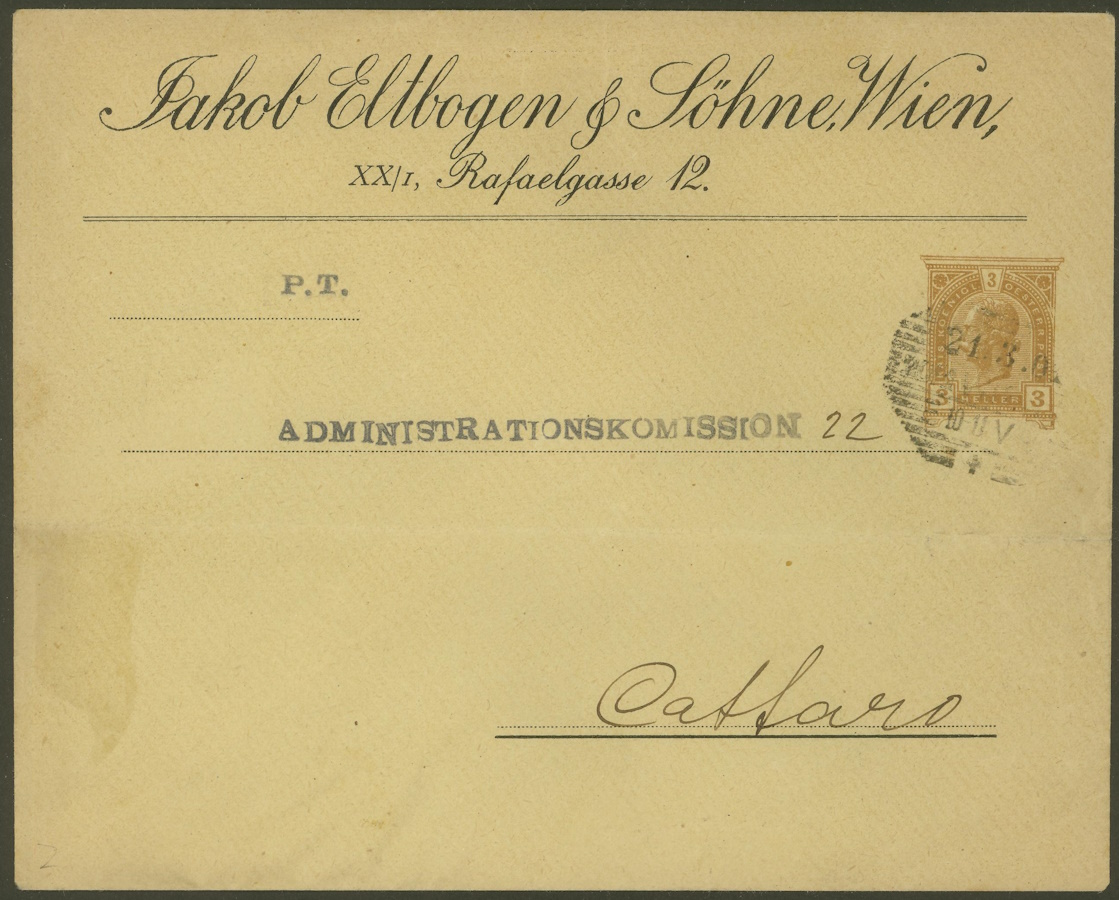 Jakob Eltbogen & Söhne, Wien,
XX/1, Rafaelgasse 12.
P.T.
3
KAIS. KOENIGL. OESTERR. POST
21.3.0
3 HELLER 3
10-11 V
ADMINISTRATIONSKOMISSION 22
Cattaro